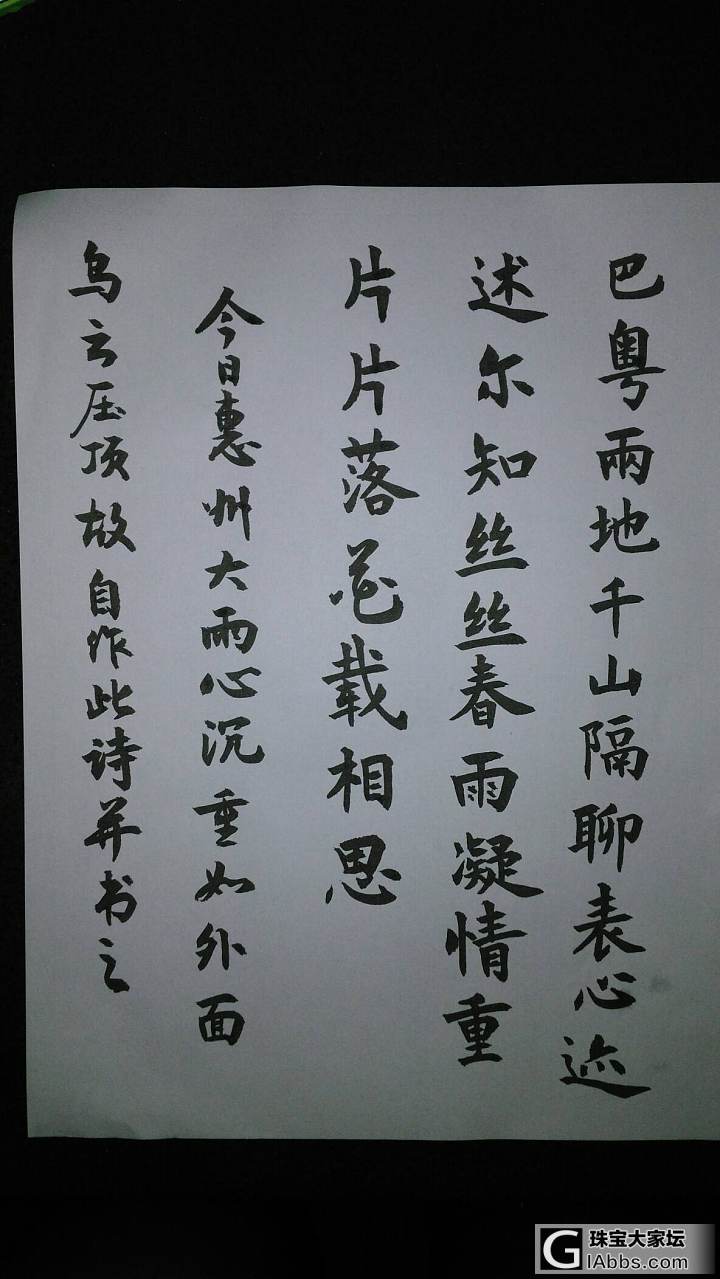 巴粤兩地千山隔聊表心迹
述尔知丝丝春雨凝情重
片片落花载相思
今日惠州大雨心沉重如外面
乌云压顶故自作此诗并书之
珠宝大家坛
GIAbbs.com